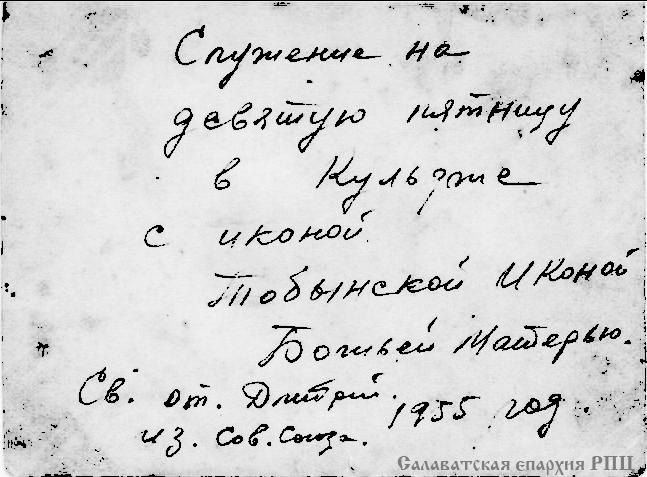 Служение на
девятую пятницу
в Кульдже
с иконой
Тобынской Иконой
Божьей Матерью.
Св. от. Дмитрий.
из. Сов. Союза. 1955 год.
Салаватская епархия РПЦ